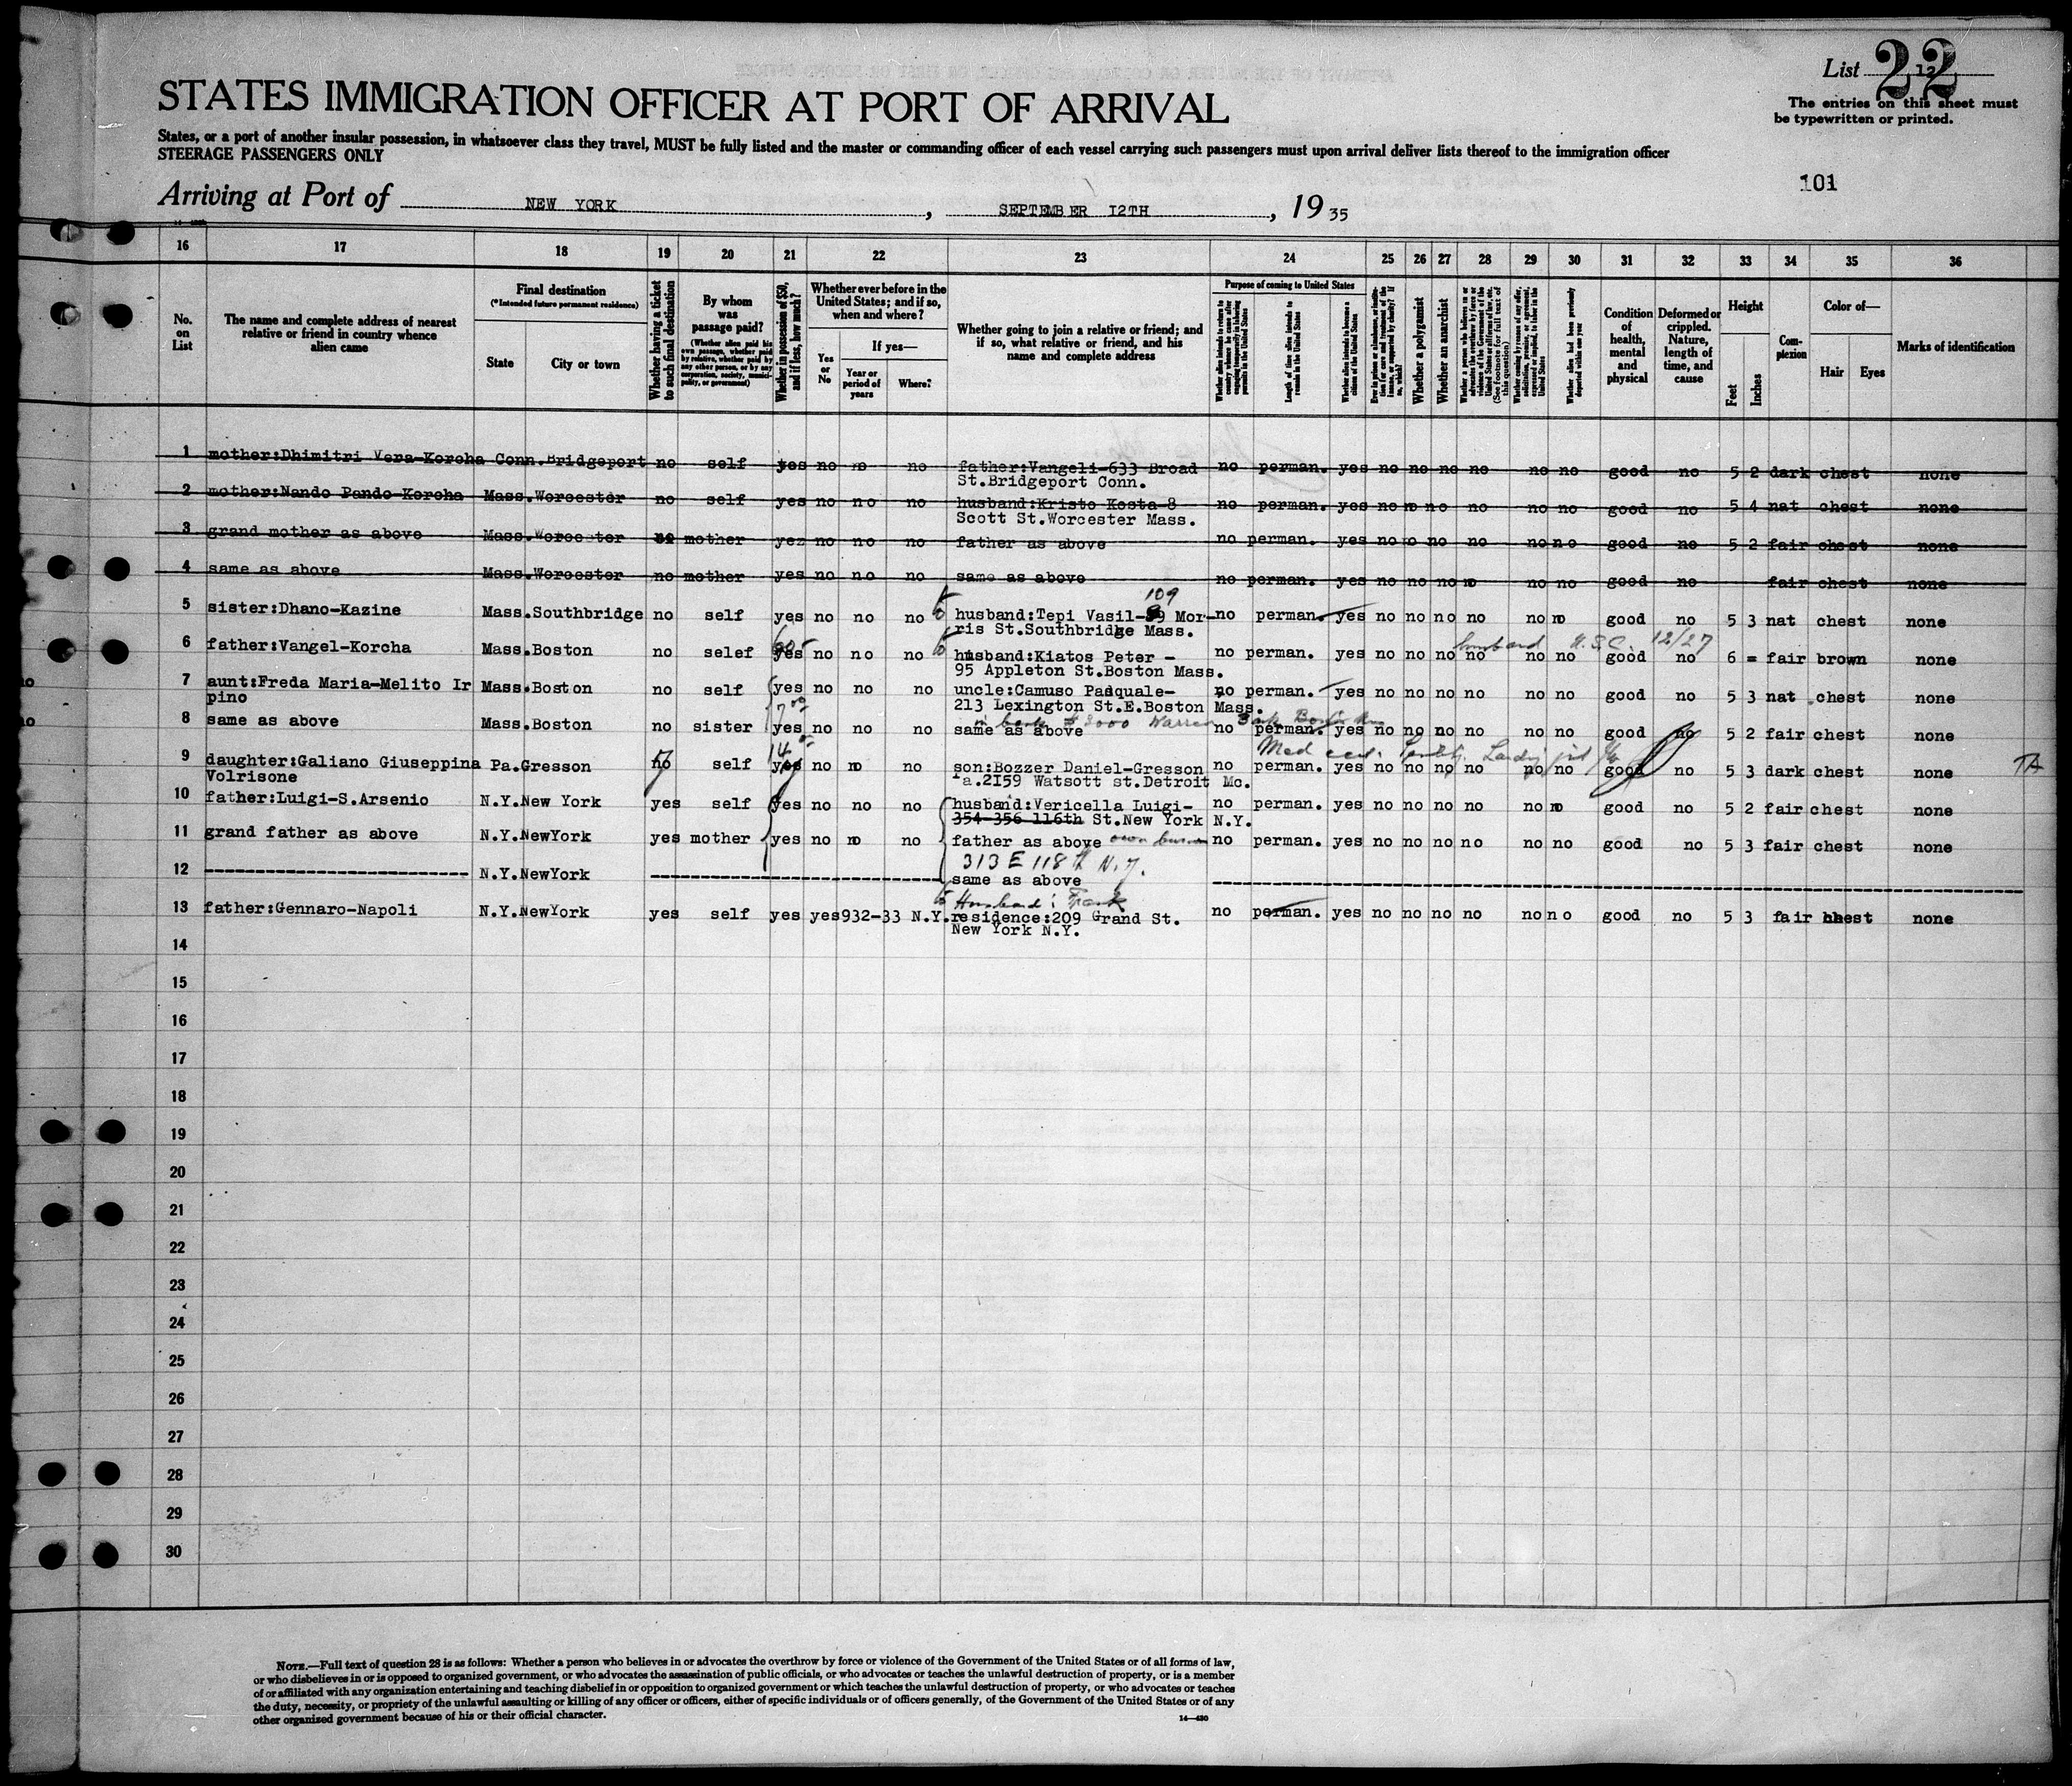 List 12
22
The entries on this sheet must
be typewritten or printed.
STATES IMMIGRATION OFFICER AT PORT OF ARRIVAL
States, or a port of another insular possession, in whatsoever class they travel, MUST be fully listed and the master or commanding officer of each vessel carrying such passengers must upon arrival deliver lists thereof to the immigration officer
STEERAGE PASSENGERS ONLY
101
Arriving at Port of NEW YORK, SEPTEMBER I2TH, 1935
16 17 18 19 20 21 22 23 24 25 26 27 28 29 30 31 32 33 34 35 36
No. on List
The name and complete address of nearest relative or friend in country whence alien came
Final destination
(*Intended future permanent residence)
State
City or town
Whether having a ticket to such final destination
By whom was passage paid?
(Whether alien paid his own passage, whether paid by relative, whether paid by any other person, or by any corporation, society, municipality, or government)
Whether in possession of $50, and if less, how much?
Whether ever before in the United States; and if so, when and where?
Yes or No
If yes—
Year or period of years
Where?
Whether going to join a relative or friend; and if so, what relative or friend, and his name and complete address
Purpose of coming to United States
Whether alien intends to return to country whence he came after engaging temporarily in laboring pursuits in the United States
Length of time alien intends to remain in the United States
Whether alien intends to become a citizen of the United States
Whether a polygamist
Whether an anarchist
Whether alien had been previously deported within one year
Condition of health, mental and physical
Deformed or crippled. Nature, length of time, and cause
Height
Feet
Inches
Complexion
Color of—
Hair
Eyes
Marks of identification
1 mother:Dhimitri Vera-Korcha Conn.Bridgeport no self yes no no no father:Vangeli-633 Broad no perman. yes no no no no no no good no 5 2 dark chest none
St.Bridgeport Conn.
2 mother:Nando Pando-Korcha Mass.Worcester no self yes no no no husband:Kristo Kosta-8 no perman. yes no no no no no no good no 5 4 nat chest none
Scott St.Worcester Mass.
3 grand mother as above Mass.Worcester no mother yes no no no father as above no perman. yes no no no no no no good no 5 2 fair chest none
4 same as above Mass.Worcester no mother yes no no no same as above no perman. yes no no no no no no good no fair chest none
109
5 sister:Dhano-Kazine Mass.Southbridge no self yes no no no husband:Tepi Vasil-89 Mor- no perman. yes no no no no no no good no 5 3 nat chest none
ris St.Southbridge Mass.
husband U.S.C. 12/27
6 father:Vangel-Korcha Mass.Boston no selef yes no no no husband:Kiatos Peter - no perman. yes no no no no no no good no 6 = fair brown none
95 Appleton St.Boston Mass.
7 aunt:Freda Maria-Melito Ir Mass.Boston no self yes no no no uncle:Camuso Pasquale- no perman. yes no no no no no no good no 5 3 nat chest none
pino 213 Lexington St.E.Boston Mass.
in bank $ 2000 Warren Bank Boston
8 same as above Mass.Boston no sister yes no no no same as above no perman. yes no no no no no no good no 5 2 fair chest none
Med cert.
9 daughter:Galiano Giuseppina Pa.Gresson no self yes no no no son:Bozzer Daniel-Gresson no perman. yes no no no no no no good no 5 3 dark chest none TA
Volrisone Pa.2I59 Watsott st.Detroit Mc.
10 father:Luigi-S.Arsenio N.Y.New York yes self yes no no no husband:Vericella Luigi- no perman. yes no no no no no no good no 5 2 fair chest none
354-356 116th St.New York N.Y.
11 grand father as above N.Y.NewYork yes mother yes no no no father as above own no perman. yes no no no no no no good no 5 3 fair chest none
313 E 118th N.Y.
12 -------------------------- N.Y.NewYork ----------------------- same as above -----------------------
Husband: Frank
13 father:Gennaro-Napoli N.Y.NewYork yes self yes yes 932-33 N.Y. residence:209 Grand St. no perman. yes no no no no no no good no 5 3 fair chest none
New York N.Y.
14
15
16
17
18
19
20
21
22
23
24
25
26
27
28
29
30
NOTE.—Full text of question 28 is as follows: Whether a person who believes in or advocates the overthrow by force or violence of the Government of the United States or of all forms of law,
or who disbelieves in or is opposed to organized government, or who advocates the assassination of public officials, or who advocates or teaches the unlawful destruction of property, or is a member
of or affiliated with any organization entertaining and teaching disbelief in or opposition to organized government or which teaches the unlawful destruction of property, or who advocates or teaches
the duty, necessity, or propriety of the unlawful assaulting or killing of any officer or officers, either of specific individuals or of officers generally, of the Government of the United States or of any
other organized government because of his or their official character.
14—430